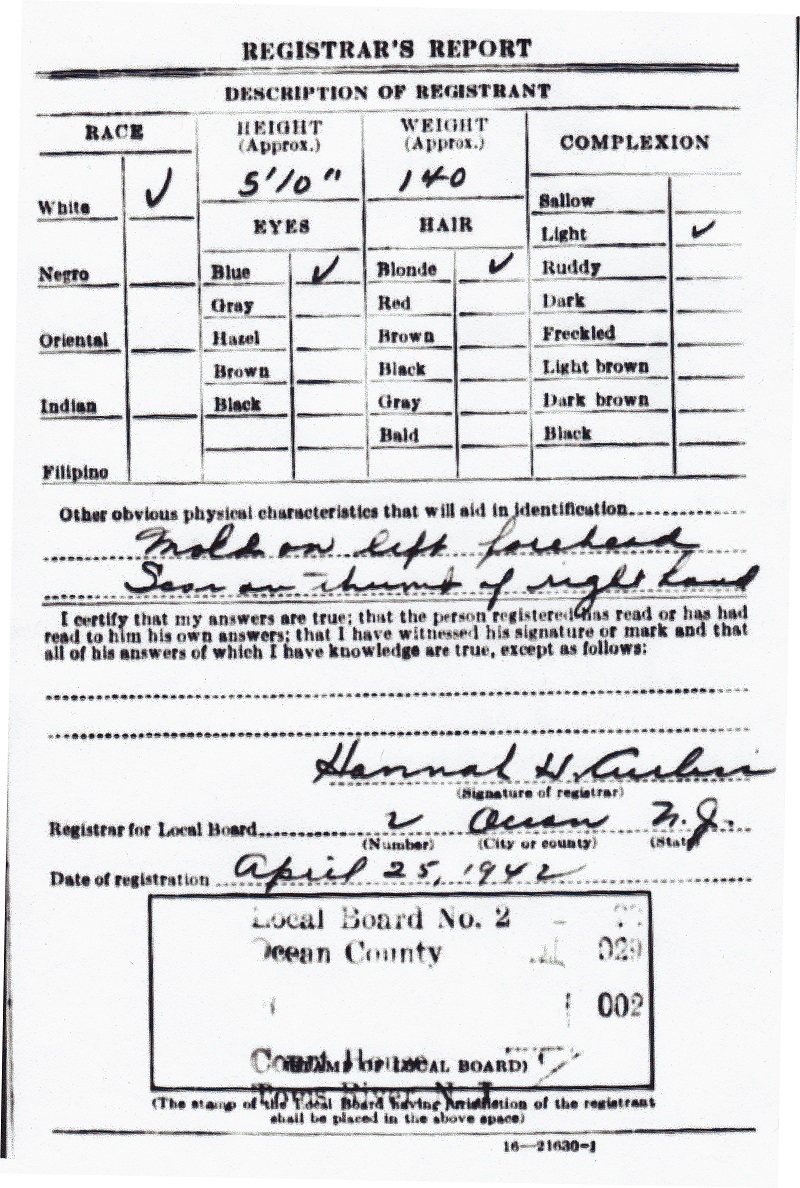 REGISTRAR'S REPORT
DESCRIPTION OF REGISTRANT
RACE
HEIGHT (Approx.)
WEIGHT (Approx.)
COMPLEXION
5'10"
140
White ✓
EYES
HAIR
Sallow
Light ✓
Negro
Blue ✓
Blonde ✓
Ruddy
Gray
Red
Dark
Oriental
Hazel
Brown
Freckled
Brown
Black
Light brown
Indian
Black
Gray
Dark brown
Bald
Black
Filipino
Other obvious physical characteristics that will aid in identification
Mold on left forehead
Scar on thumb of right hand
I certify that my answers are true; that the person registered has read or has had
read to him his own answers; that I have witnessed his signature or mark and that
all of his answers of which I have knowledge are true, except as follows:
Hannah H.
(Signature of registrar)
Registrar for Local Board 2 Ocean N.J.
(Number) (City or county) (State)
Date of registration April 25, 1942
Local Board No. 2
Ocean County 029
002
Court House
(STAMP OF LOCAL BOARD)
Toms River, N. J.
(The stamp of the Local Board having jurisdiction of the registrant
shall be placed in the above space)
16—21630-1